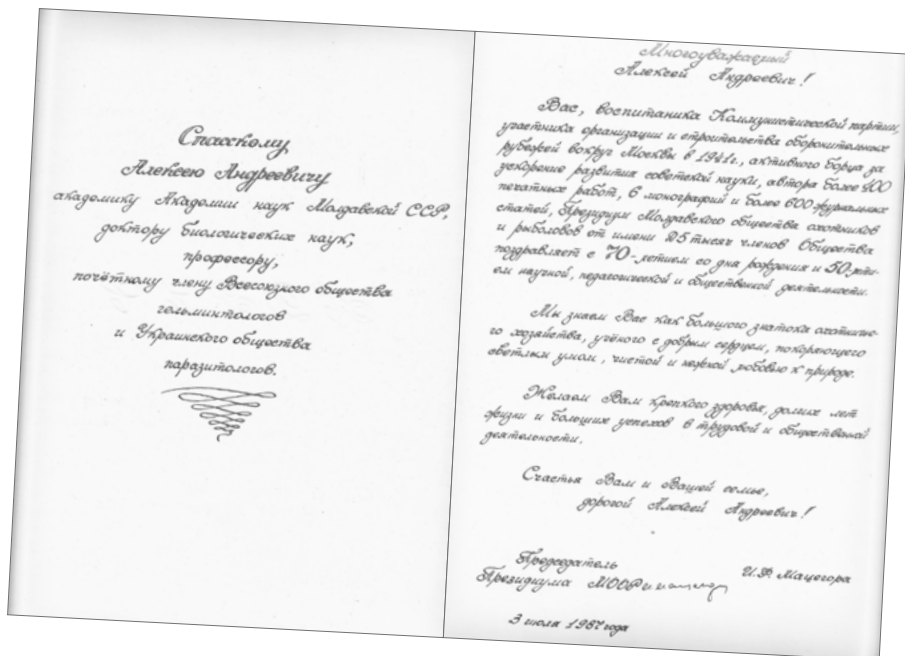 Спасскому
Алексею Андреевичу
академику Академии наук Молдавской ССР,
доктору биологических наук,
профессору,
почётному члену Всесоюзного общества
гельминтологов
и Украинского общества
паразитологов.
Многоуважаемый
Алексей Андреевич!
Вас, воспитаника Коммунистической партии,
участника организации и строительства оборонительных
рубежей вокруг Москвы в 1941г., активного борца за
ускорение развития советской науки, автора более 900
печатных работ, 6 монографий и более 600 журнальных
статей, Президиум Молдавского общества охотников
и рыболовов от имени 25 тысяч членов Общества
поздравляет с 70-летием со дня рождения и 50-лети-
ем научной, педагогической и общественной деятельности.
Мы знаем Вас как большого знатока охотничье-
го хозяйства, учёного с добрым сердцем, покоряющего
светлым умом, чистой и нежной любовью к природе.
Желаем Вам крепкого здоровья, долгих лет
жизни и больших успехов в трудовой и общественной
деятельности.
Счастья Вам и Вашей семье,
дорогой Алексей Андреевич!
Председатель
Президиума МООР И.Ф. Мацегора
3 июля 1987 года